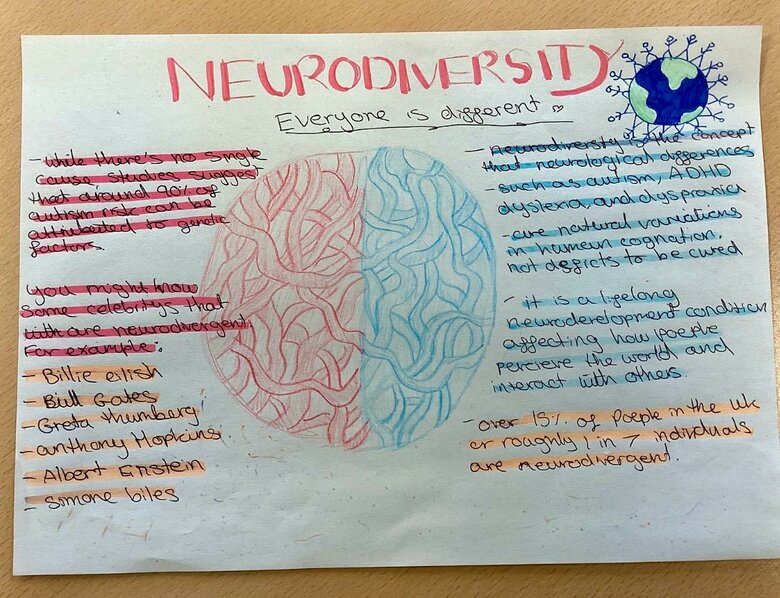 NEURODIVERSITY
Everyone is different
- while there's no single
cause, studies suggest
that around 90% of
autism risk can be
attributed to genetic
factors.
you might know
some celebritys that
are neurodivergent.
For example:
- Billie eilish
- Bill Gates
- Greta thunberg
- anthony Hopkins
- Albert Einstein
- simone biles
- neurodiversity is the concept
that neurological differences
- such as autism, ADHD
dyslexia, and dyspraxia
- are natural variations
in human cognation.
not deficts to be cured
- it is a lifelong
neurodevelopment condition
affecting how poeple
percieve the world and
interact with others.
- over 15% of Poeple in the UK
or roughly 1 in 7 individuals
are neurodivergent.